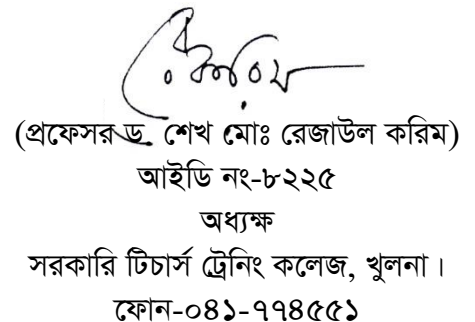 রেকরিম
(প্রফেসর ড. শেখ মোঃ রেজাউল করিম)
আইডি নং-৮২২৫
অধ্যক্ষ
সরকারি টিচার্স ট্রেনিং কলেজ, খুলনা।
ফোন-০৪১-৭৭৪৫৫১